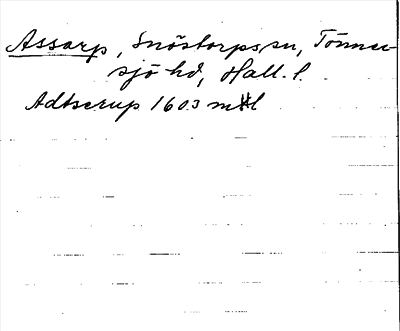 Assarp, Snöstorps sn, Tönner-
sjö hd, Hall. l.
Adtserup 1603 mtl